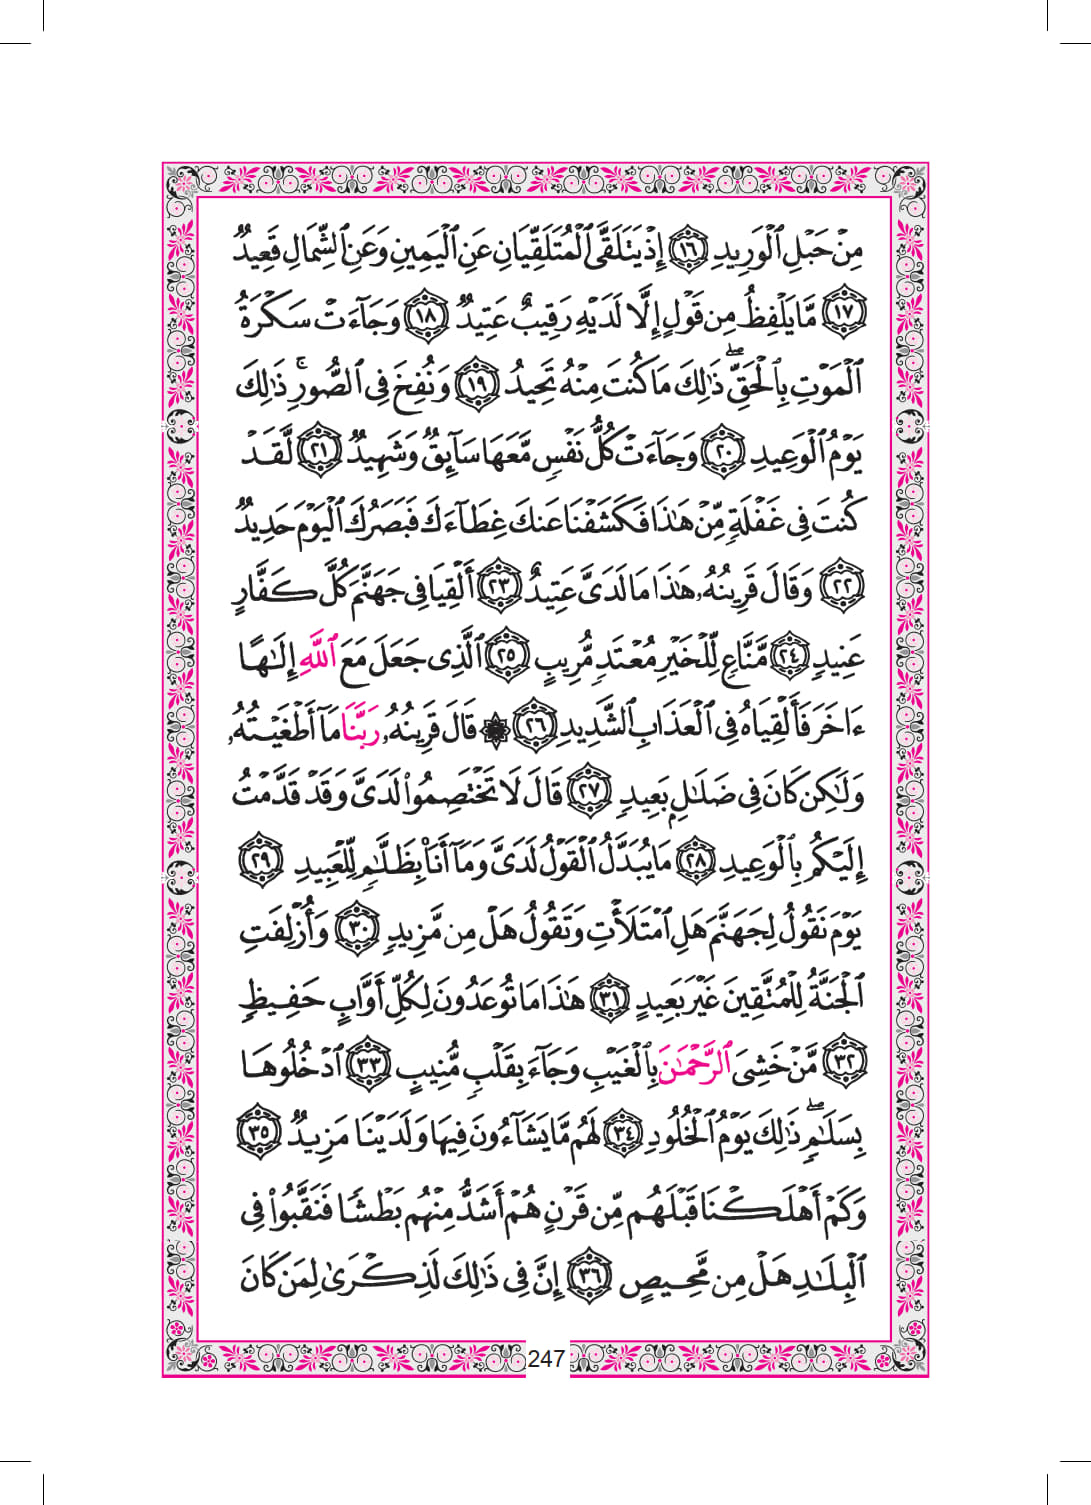 مِنْ حَبْلِ ٱلْوَرِيدِ ۝١٦ إِذْ يَتَلَقَّى ٱلْمُتَلَقِّيَانِ عَنِ ٱلْيَمِينِ وَعَنِ ٱلشِّمَالِ قَعِيدٌ
۝١٧ مَّا يَلْفِظُ مِن قَوْلٍ إِلَّا لَدَيْهِ رَقِيبٌ عَتِيدٌ ۝١٨ وَجَآءَتْ سَكْرَةُ
ٱلْمَوْتِ بِٱلْحَقِّ ۖ ذَٰلِكَ مَا كُنتَ مِنْهُ تَحِيدُ ۝١٩ وَنُفِخَ فِى ٱلصُّورِ ۚ ذَٰلِكَ
يَوْمُ ٱلْوَعِيدِ ۝٢٠ وَجَآءَتْ كُلُّ نَفْسٍ مَّعَهَا سَآئِقٌ وَشَهِيدٌ ۝٢١ لَّقَدْ
كُنتَ فِى غَفْلَةٍ مِّنْ هَٰذَا فَكَشَفْنَا عَنكَ غِطَآءَكَ فَبَصَرُكَ ٱلْيَوْمَ حَدِيدٌ
۝٢٢ وَقَالَ قَرِينُهُۥ هَٰذَا مَا لَدَىَّ عَتِيدٌ ۝٢٣ أَلْقِيَا فِى جَهَنَّمَ كُلَّ كَفَّارٍ
عَنِيدٍ ۝٢٤ مَّنَّاعٍ لِّلْخَيْرِ مُعْتَدٍ مُّرِيبٍ ۝٢٥ ٱلَّذِى جَعَلَ مَعَ ٱللَّهِ إِلَٰهًا
ءَاخَرَ فَأَلْقِيَاهُ فِى ٱلْعَذَابِ ٱلشَّدِيدِ ۝٢٦ ۞ قَالَ قَرِينُهُۥ رَبَّنَا مَآ أَطْغَيْتُهُۥ
وَلَٰكِن كَانَ فِى ضَلَٰلٍۭ بَعِيدٍ ۝٢٧ قَالَ لَا تَخْتَصِمُوا۟ لَدَىَّ وَقَدْ قَدَّمْتُ
إِلَيْكُم بِٱلْوَعِيدِ ۝٢٨ مَا يُبَدَّلُ ٱلْقَوْلُ لَدَىَّ وَمَآ أَنَا۠ بِظَلَّٰمٍ لِّلْعَبِيدِ ۝٢٩
يَوْمَ نَقُولُ لِجَهَنَّمَ هَلِ ٱمْتَلَأْتِ وَتَقُولُ هَلْ مِن مَّزِيدٍ ۝٣٠ وَأُزْلِفَتِ
ٱلْجَنَّةُ لِلْمُتَّقِينَ غَيْرَ بَعِيدٍ ۝٣١ هَٰذَا مَا تُوعَدُونَ لِكُلِّ أَوَّابٍ حَفِيظٍ
۝٣٢ مَّنْ خَشِىَ ٱلرَّحْمَٰنَ بِٱلْغَيْبِ وَجَآءَ بِقَلْبٍ مُّنِيبٍ ۝٣٣ ٱدْخُلُوهَا
بِسَلَٰمٍ ۖ ذَٰلِكَ يَوْمُ ٱلْخُلُودِ ۝٣٤ لَهُم مَّا يَشَآءُونَ فِيهَا وَلَدَيْنَا مَزِيدٌ ۝٣٥
وَكَمْ أَهْلَكْنَا قَبْلَهُم مِّن قَرْنٍ هُمْ أَشَدُّ مِنْهُم بَطْشًا فَنَقَّبُوا۟ فِى
ٱلْبِلَٰدِ هَلْ مِن مَّحِيصٍ ۝٣٦ إِنَّ فِى ذَٰلِكَ لَذِكْرَىٰ لِمَن كَانَ
247